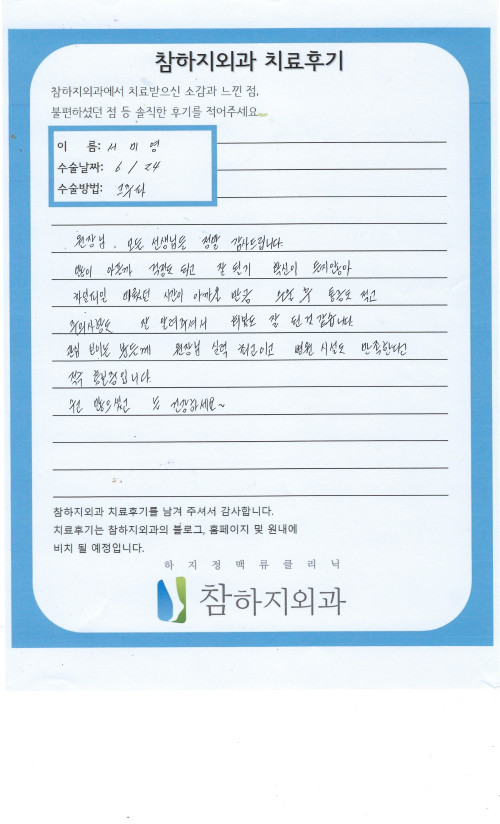 참하지외과 치료후기
참하지외과에서 치료받으신 소감과 느낀 점,
불편하셨던 점 등 솔직한 후기를 적어주세요
이 름: 서 미 영
수술날짜: 6 / 24
수술방법:
원장님, 모든 선생님들 정말 감사드립니다.
많이 아플까 걱정도 되고 잘 될지 확신이 뜨지않아
차일피일 미뤘던 시간이 아까울 만큼 수술 후 통증도 적고
주의사항도 잘 알려주셔서 회복도 잘 된 것 같습니다.
관심 보이는 분들께 원장님 실력 최고이고 병원 시설도 만족한다고
적극 홍보중입니다.
수고 많으셨고 늘 건강하세요~
참하지외과 치료후기를 남겨 주셔서 감사합니다.
치료후기는 참하지외과의 블로그, 홈페이지 및 원내에
비치 될 예정입니다.
하지정맥류클리닉
참하지외과